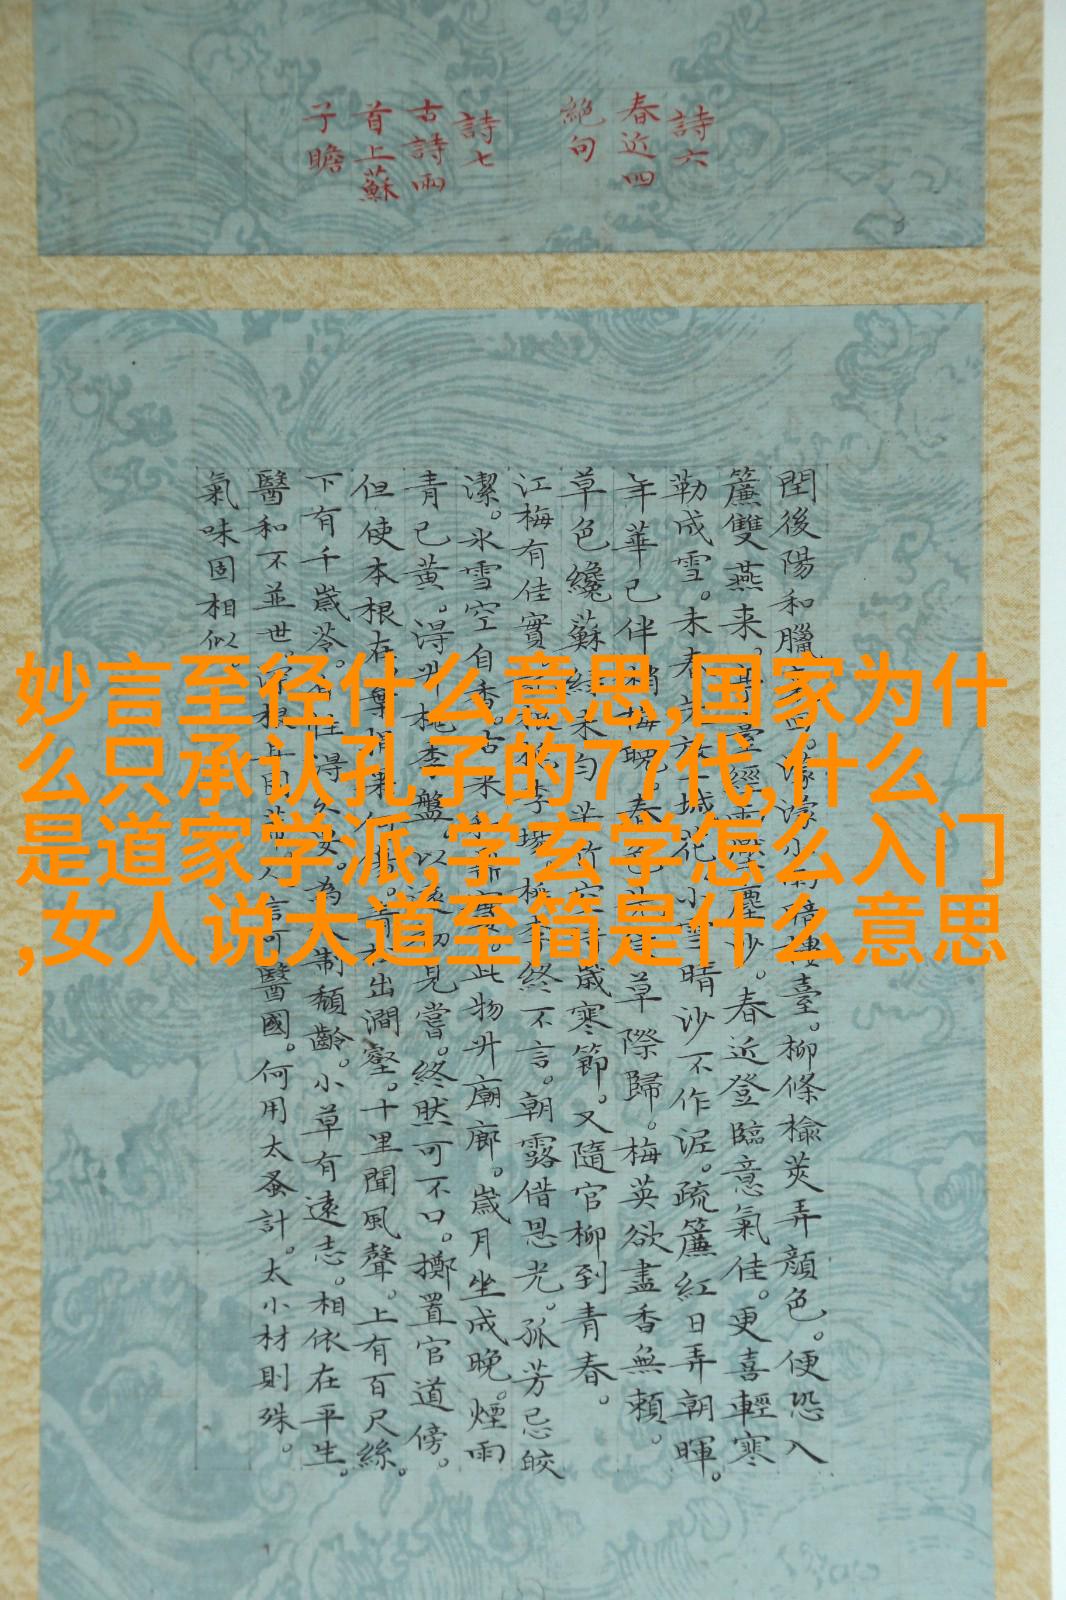 詩六
春近四
絶句
詩七
古詩兩
首上蘇
子瞻
閏後陽和臘 小 臺。柳條榆莢弄顏色。便恐入
簾雙燕来。 塵沙。春近登臨意氣佳。更喜輕寒
勒成雪。未春 城花。小雪晴沙不作泥。疏簾紅日弄朝暉。
年華已伴梢梅晚。春色 草際歸。梅英欲盡香無賴。
草色纔蘇緑未匀。苦竹空 歲寒節。又隨官柳到青春。
江梅有佳實。 桃李終不言。朝露借恩光。孤芳忌皎
潔。冰雪空自香。古来 此物升廟廊。歲月坐成晚。煙雨
青已黃。得升桃李盤。以遠初見嘗。終然可不口。擲置官道傍。
但使本根在。棄捐果何 出澗壑。十里聞風聲。上有百尺絲。
下有千歲苓。自性得久 為人制頹齡。小草有遠志。相依在平生。
醫和不並世。深根且固蒂。人言可醫國。何用太蚤計。大小材則殊。
氣味固相似。
妙言至径什么意思,国家为什
么只承认孔子的77代,什么
是道家学派,学玄学怎么入门
,女人说大道至简是什么意思